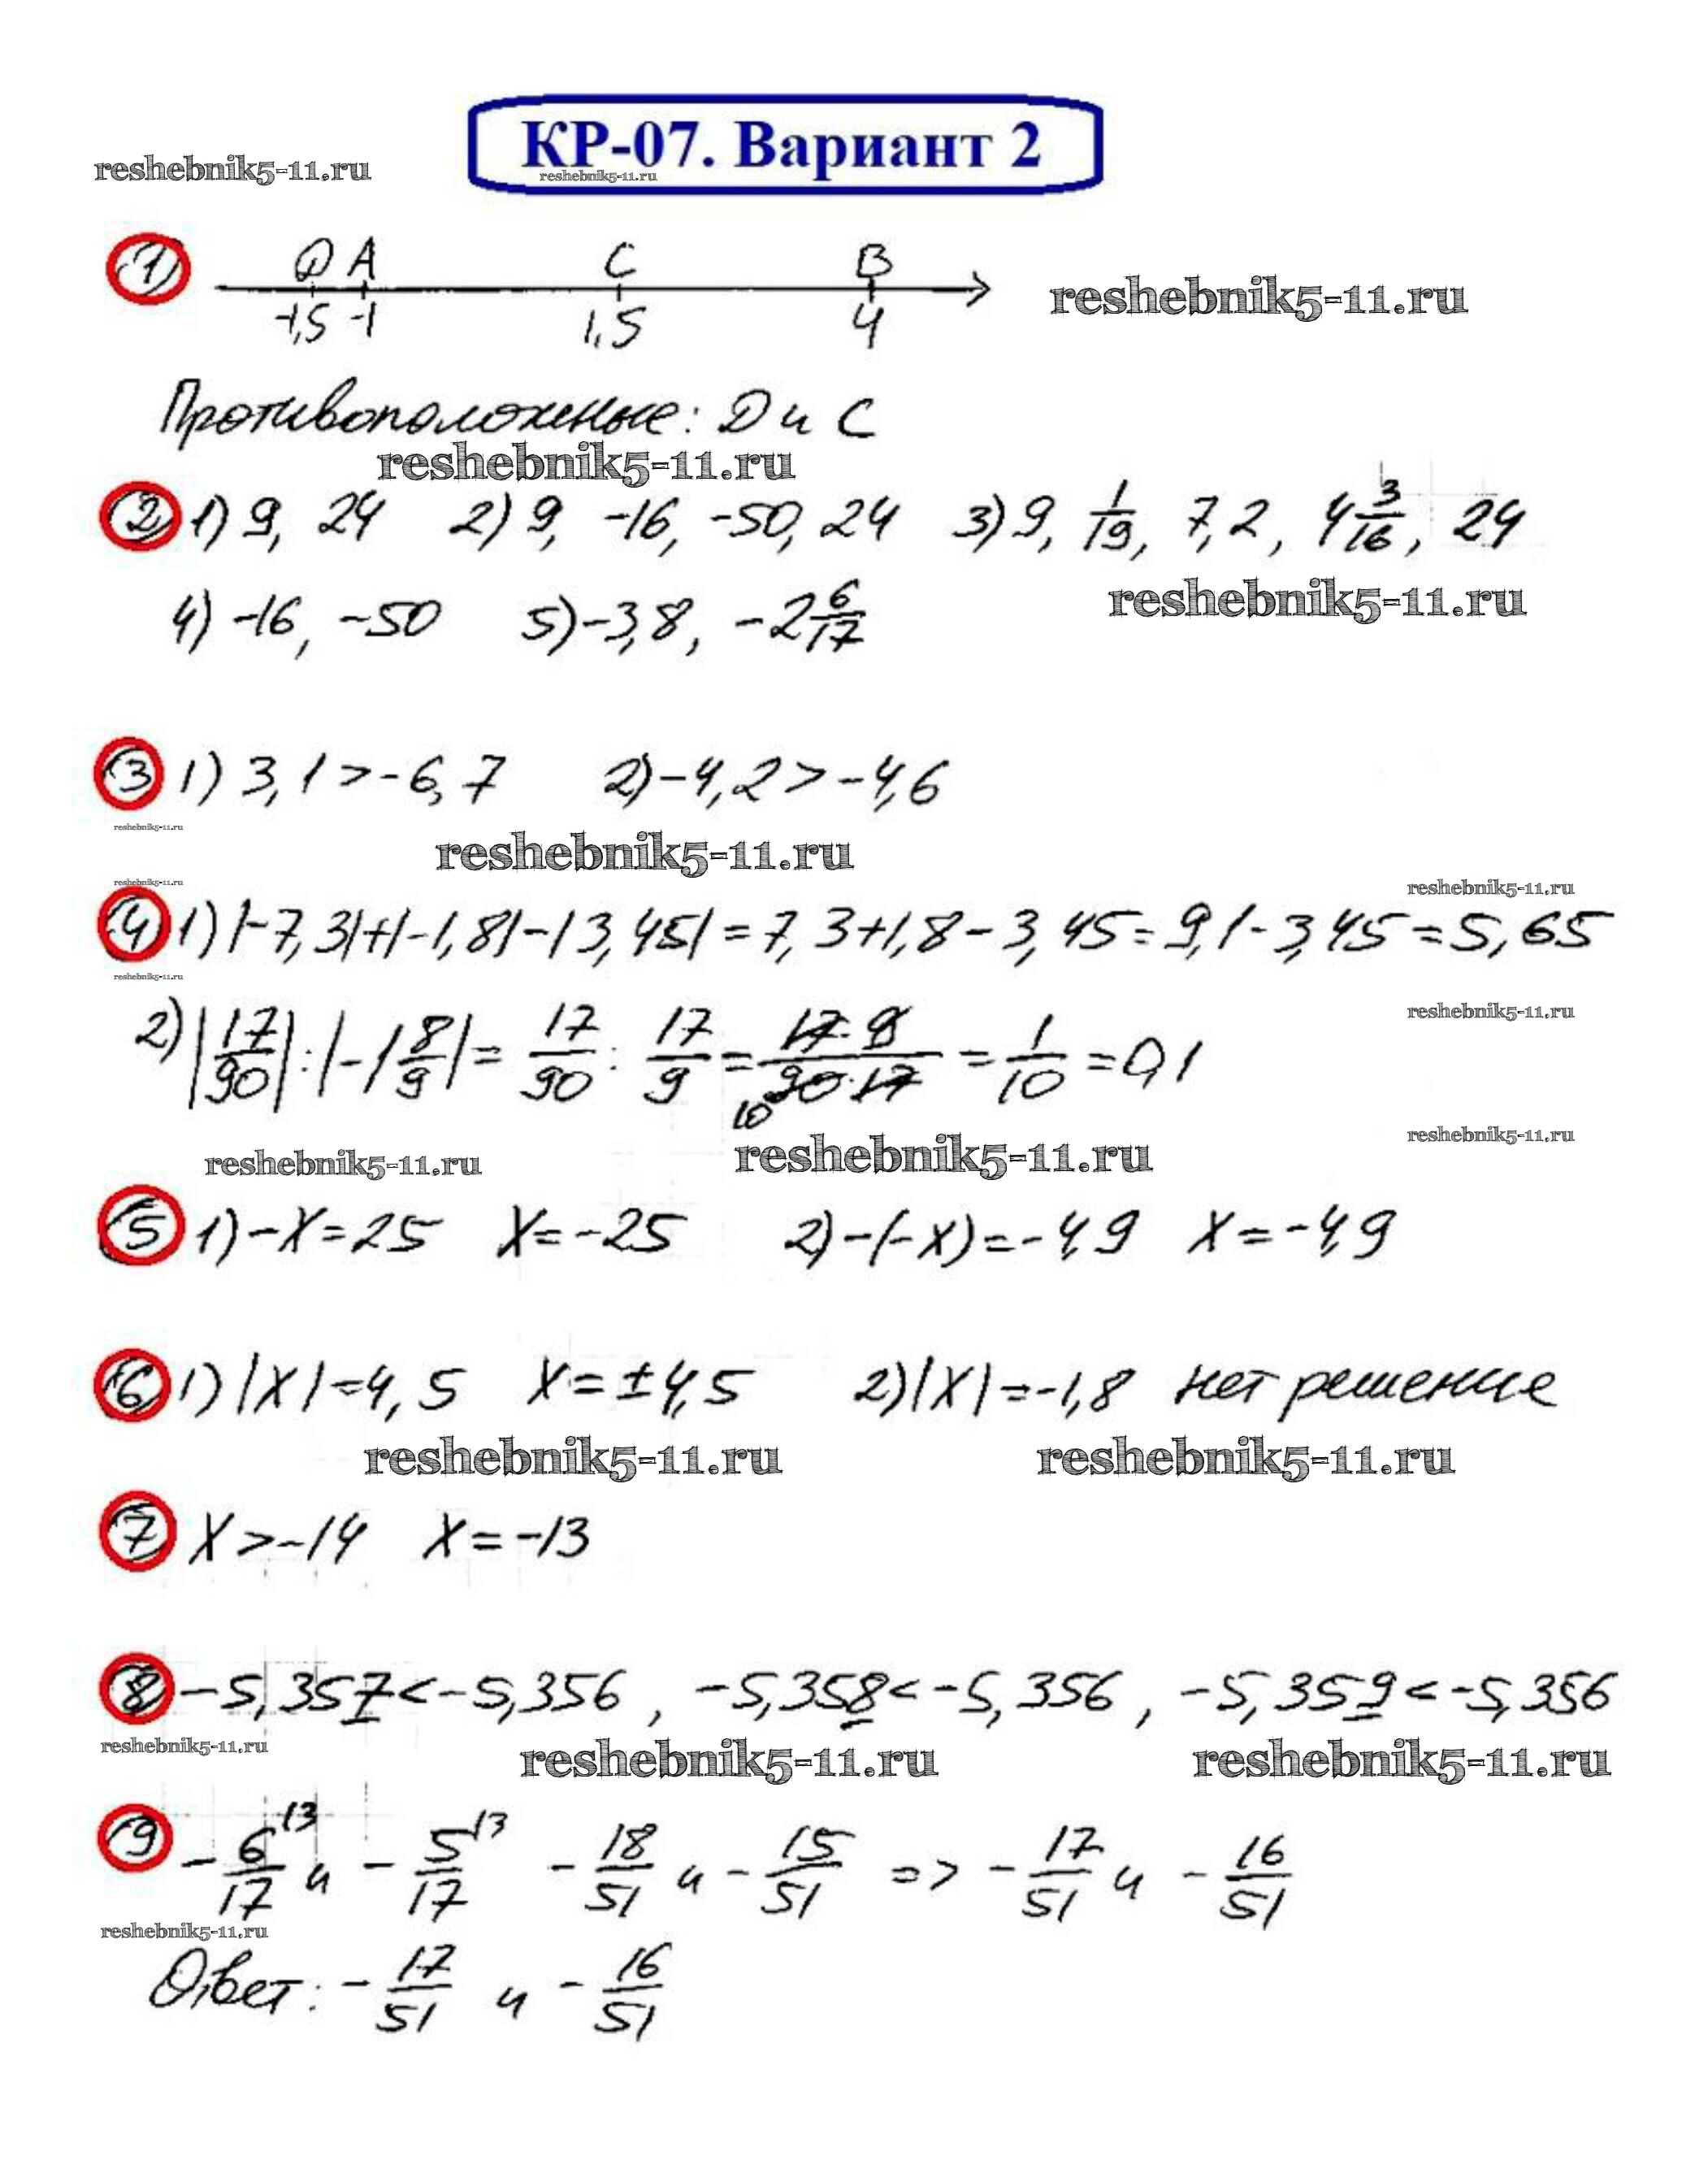 КР-07. Вариант 2
reshebnik5-11.ru
reshebnik5-11.ru
1 D A C B
-1,5 -1 1,5 4
reshebnik5-11.ru
Противоположные: D и C
reshebnik5-11.ru
2 1) 9, 24 2) 9, -16, -50, 24 3) 9, 1/19, 7,2, 4 3/16, 24
4) -16, -50 5) -3,8, -2 6/17
reshebnik5-11.ru
3 1) 3,1 > -6,7 2) -4,2 > -4,6
reshebnik5-11.ru
reshebnik5-11.ru
reshebnik5-11.ru
reshebnik5-11.ru
4 1) |-7,3|+|-1,8|-|3,45| = 7,3+1,8-3,45 = 9,1-3,45 = 5,65
reshebnik5-11.ru
reshebnik5-11.ru
2) |17/90| : |-1 8/9| = 17/90 : 17/9 = 17·9/90·17 10 = 1/10 = 0,1
reshebnik5-11.ru
reshebnik5-11.ru
reshebnik5-11.ru
5 1) -X = 25 X = -25 2) -(-X) = -4,9 X = -4,9
6 1) |X| = 4,5 X = ±4,5 2) |X| = -1,8 нет решение
reshebnik5-11.ru reshebnik5-11.ru
7 X > -14 X = -13
8 -5,357 < -5,356, -5,358 < -5,356, -5,359 < -5,356
reshebnik5-11.ru reshebnik5-11.ru reshebnik5-11.ru
9 -6/17 |3 и -5/17 |3 -18/51 и -15/51 => -17/51 и -16/51
reshebnik5-11.ru
Ответ: -17/51 и -16/51